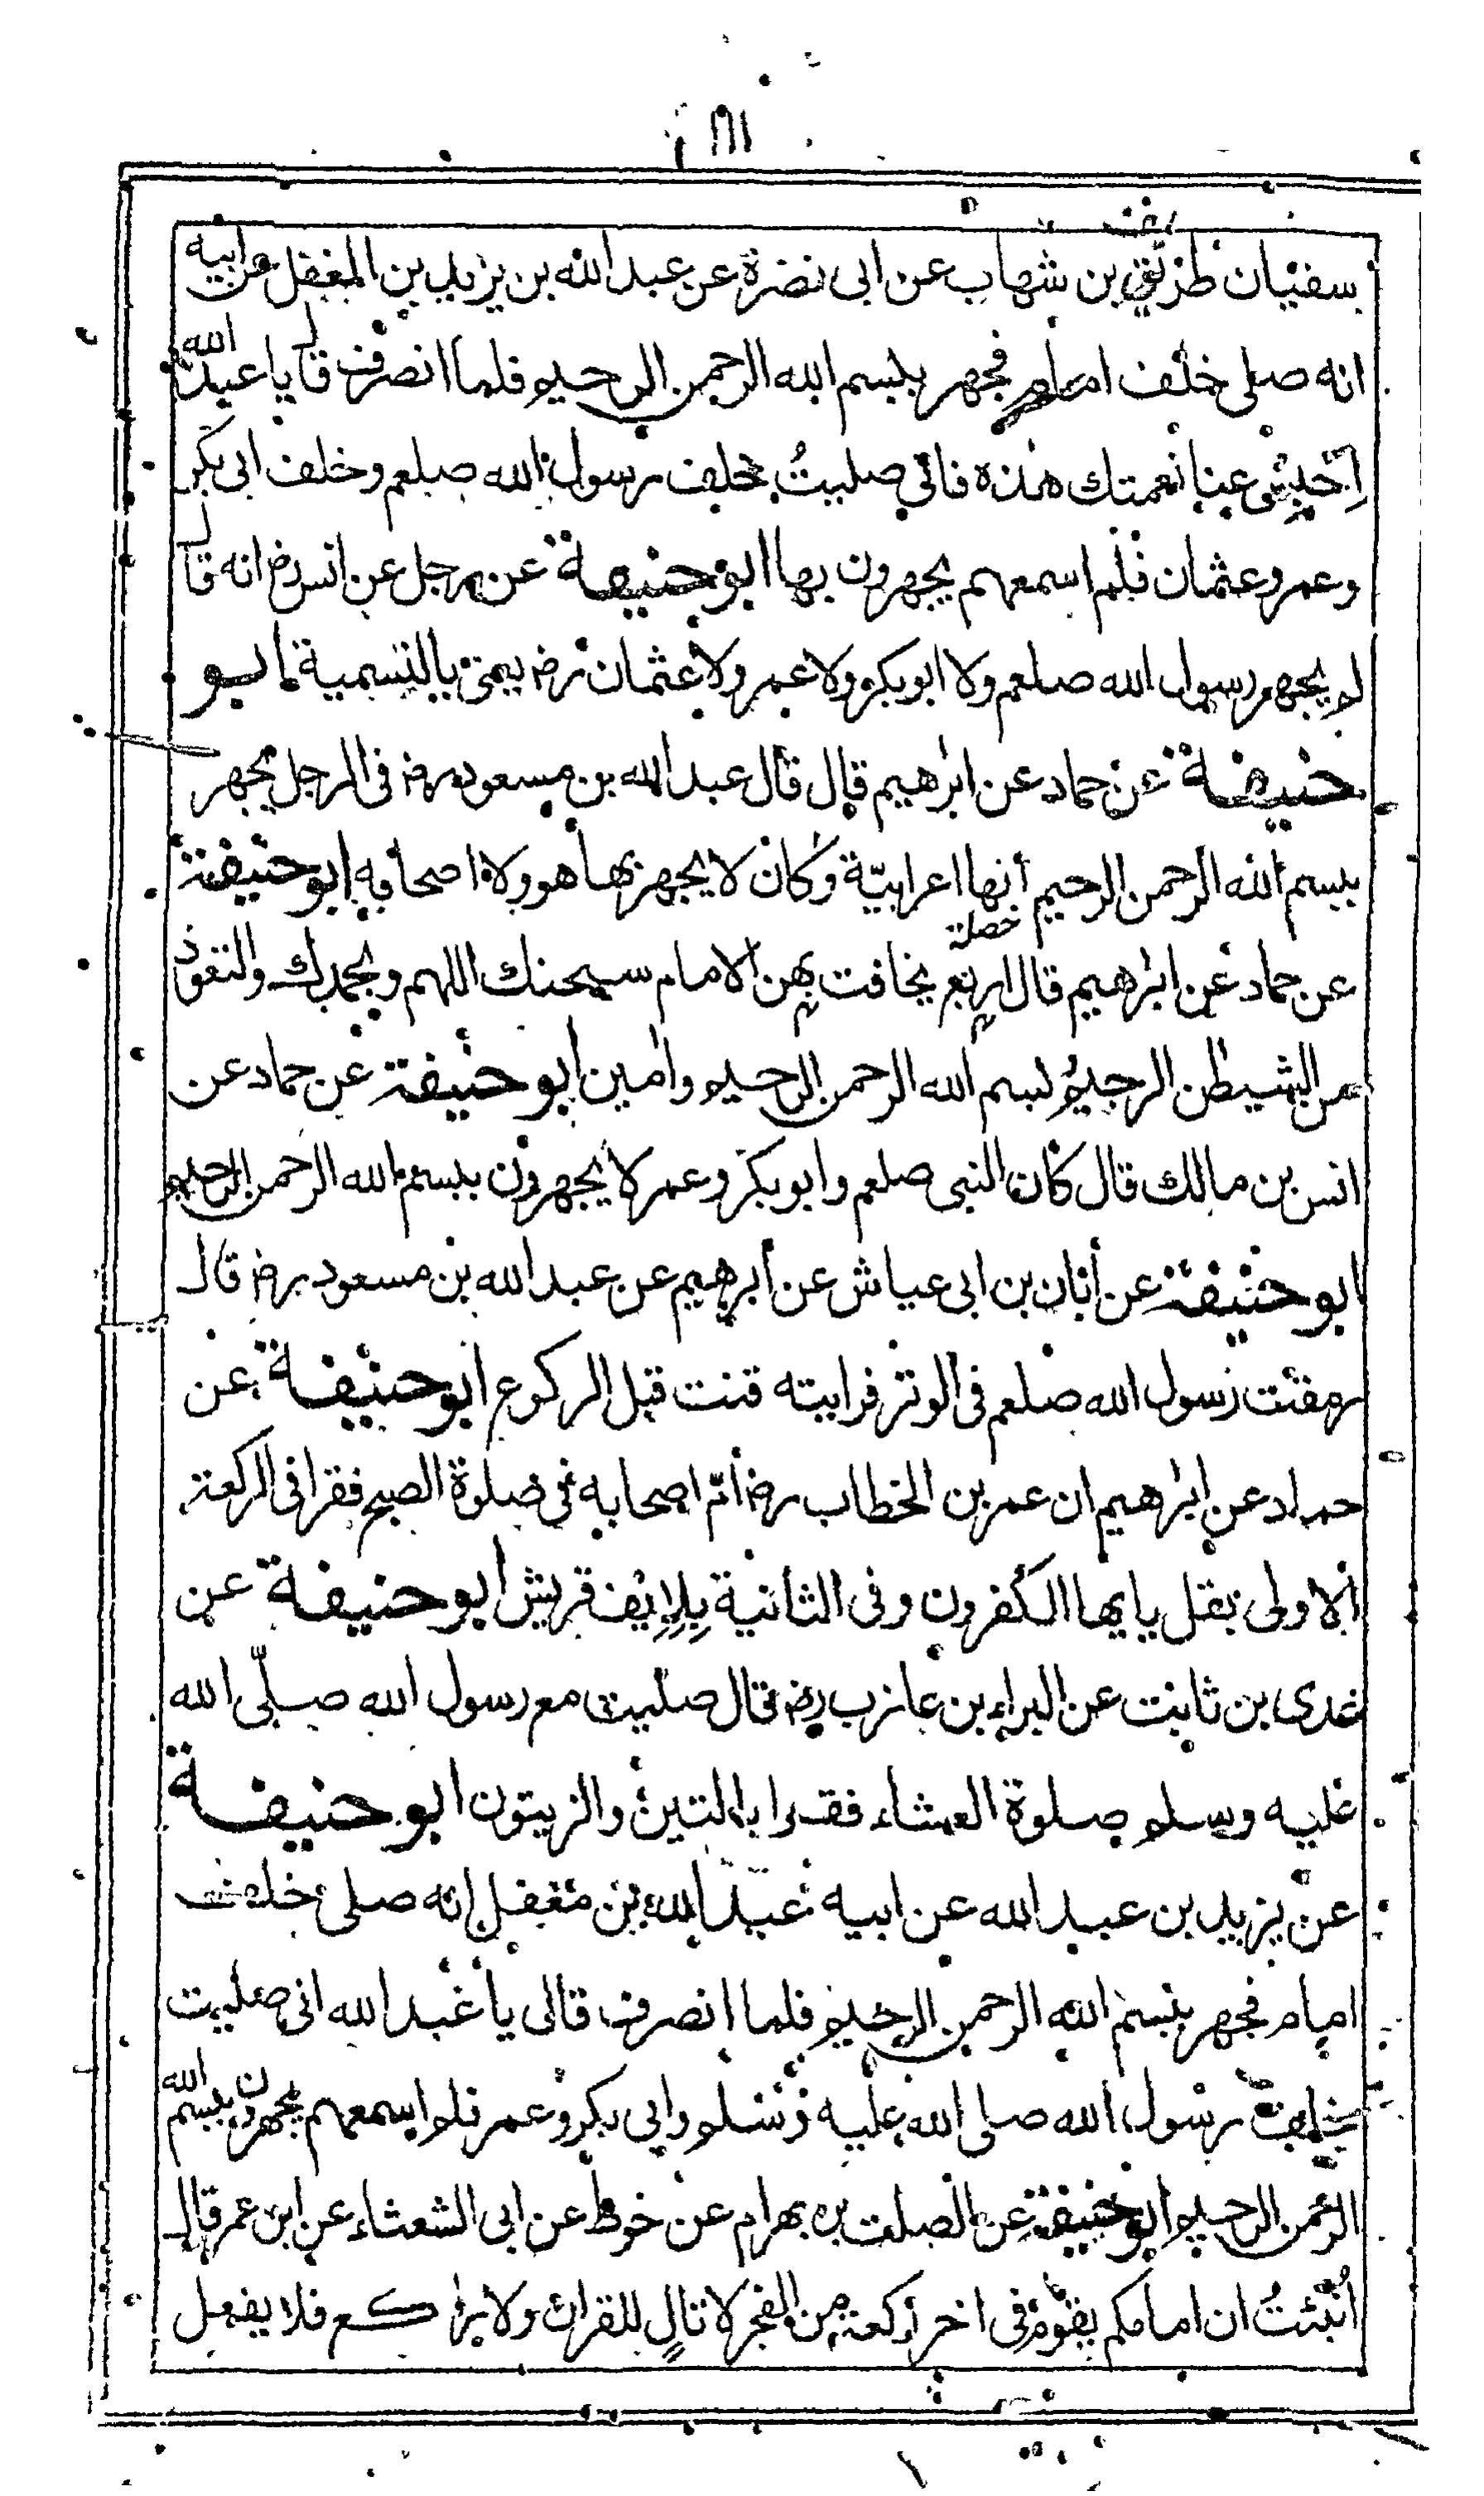 سفيان طريف بن شهاب عن ابى نضرة عن عبد الله بن يزيد بن المغفل عن ابيه
انه صلى خلف امام فجهر ببسم الله الرحمن الرحيم فلما انصرف قال يا عبد الله
احبس عنا نعمتك هذه فانى صليتُ خلف رسول الله صلعم وخلف ابى بكر
وعمر وعثمان فلم اسمعهم يجهرون بها ابو حنيفة عن رجل عن انس رض انه قال
لم يجهر رسول الله صلعم ولا ابوبكر ولا عمر ولا عثمان رض بالتسمية ابو
حنيفة عن حماد عن ابرهيم قال قال عبد الله بن مسعود رض فى الرجل يجهر
ببسم الله الرحمن الرحيم انها اعرابيّة وكان لا يجهر بها هو ولا اصحابه ابو حنيفة
عن حماد عن ابرهيم قال اربع خصلة يخافت بهن الامام سبحنك اللهم وبحمدك والتعوذ
من الشيطن الرجيم وبسم الله الرحمن الرحيم وامين ابو حنيفة عن حماد عن
انس بن مالك قال كان النبى صلعم وابو بكر وعمر لا يجهرون ببسم الله الرحمن الرحيم
ابو حنيفة عن أبان بن ابى عياش عن ابرهيم عن عبد الله بن مسعود رض قال
رمقت رسول الله صلعم فى الوتر فرايته قنت قبل الركوع ابو حنيفة عن
حماد عن ابرهيم ان عمر بن الخطاب رض أمّ اصحابه فى صلوة الصبح فقرا فى الركعة
الاولى بقل يايها الكفرون وفى الثانية بِلِاِيْف قريش ابو حنيفة عن
عدى بن ثابت عن البراء بن عازب رض قال صليت مع رسول الله صلّى الله
عليه وسلم صلوة العشاء فقرا بالتين والزيتون ابو حنيفة
عن يزيد بن عبد الله عن ابيه عبد الله بن مغفل انه صلى خلف
امام فجهر ببسم الله الرحمن الرحيم فلما انصرف قال يا عبد الله انى صليت
خلف رسول الله صلى الله عليه وسلم وابى بكر وعمر فلم اسمعهم يجهرون ببسم الله
الرحمن الرحيم ابو حنيفة عن الصلت بن بهرام عن حوط عن ابى الشعثاء عن ابن عمر قال
اُنْبئتُ ان امامكم يقوم فى اخر ركعة من الفجر لا تالٍ للقران ولا راكع فلا يفعل